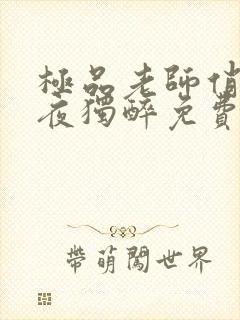 極品老師俏
夜獨醉免費
帶萌闖世界